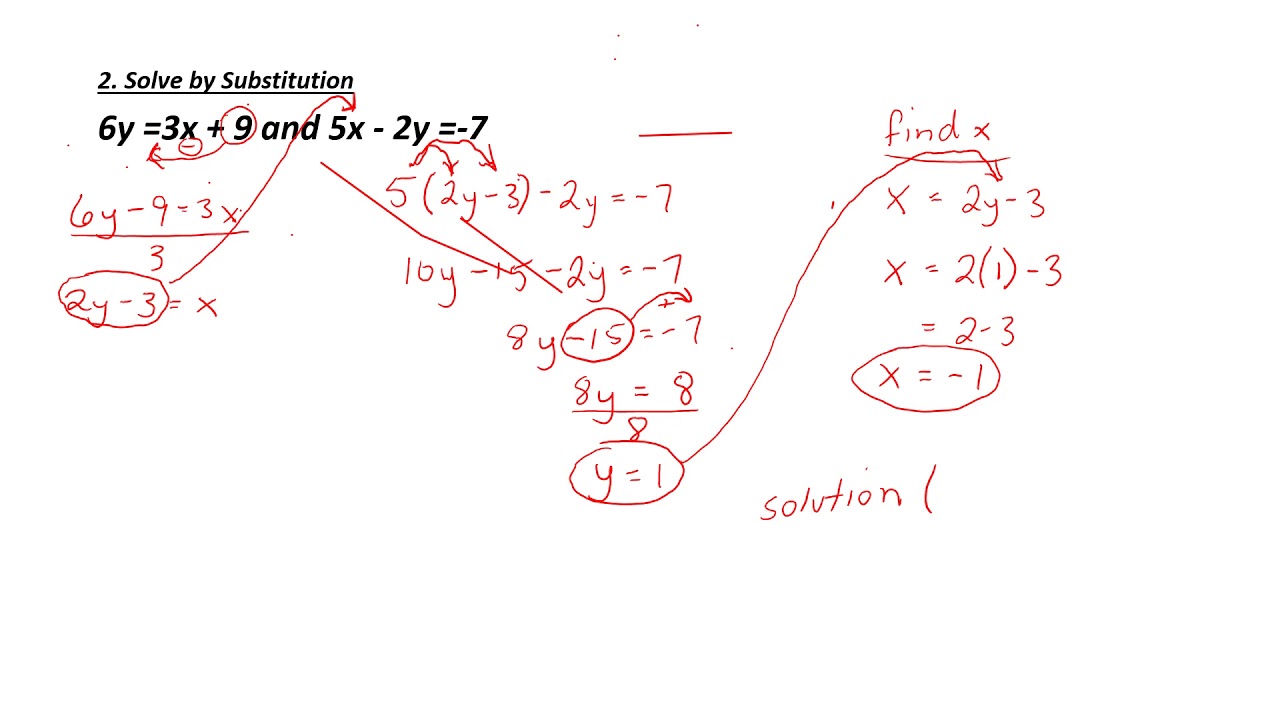 2. Solve by Substitution
6y =3x + 9 and 5x - 2y =-7
−
6y - 9 = 3x
3
2y - 3 = x
5(2y - 3) - 2y = -7
10y - 15 - 2y = -7
+
8y - 15 = -7
8y = 8
8
y = 1
find x
x = 2y - 3
x = 2(1) - 3
= 2 - 3
x = -1
solution (